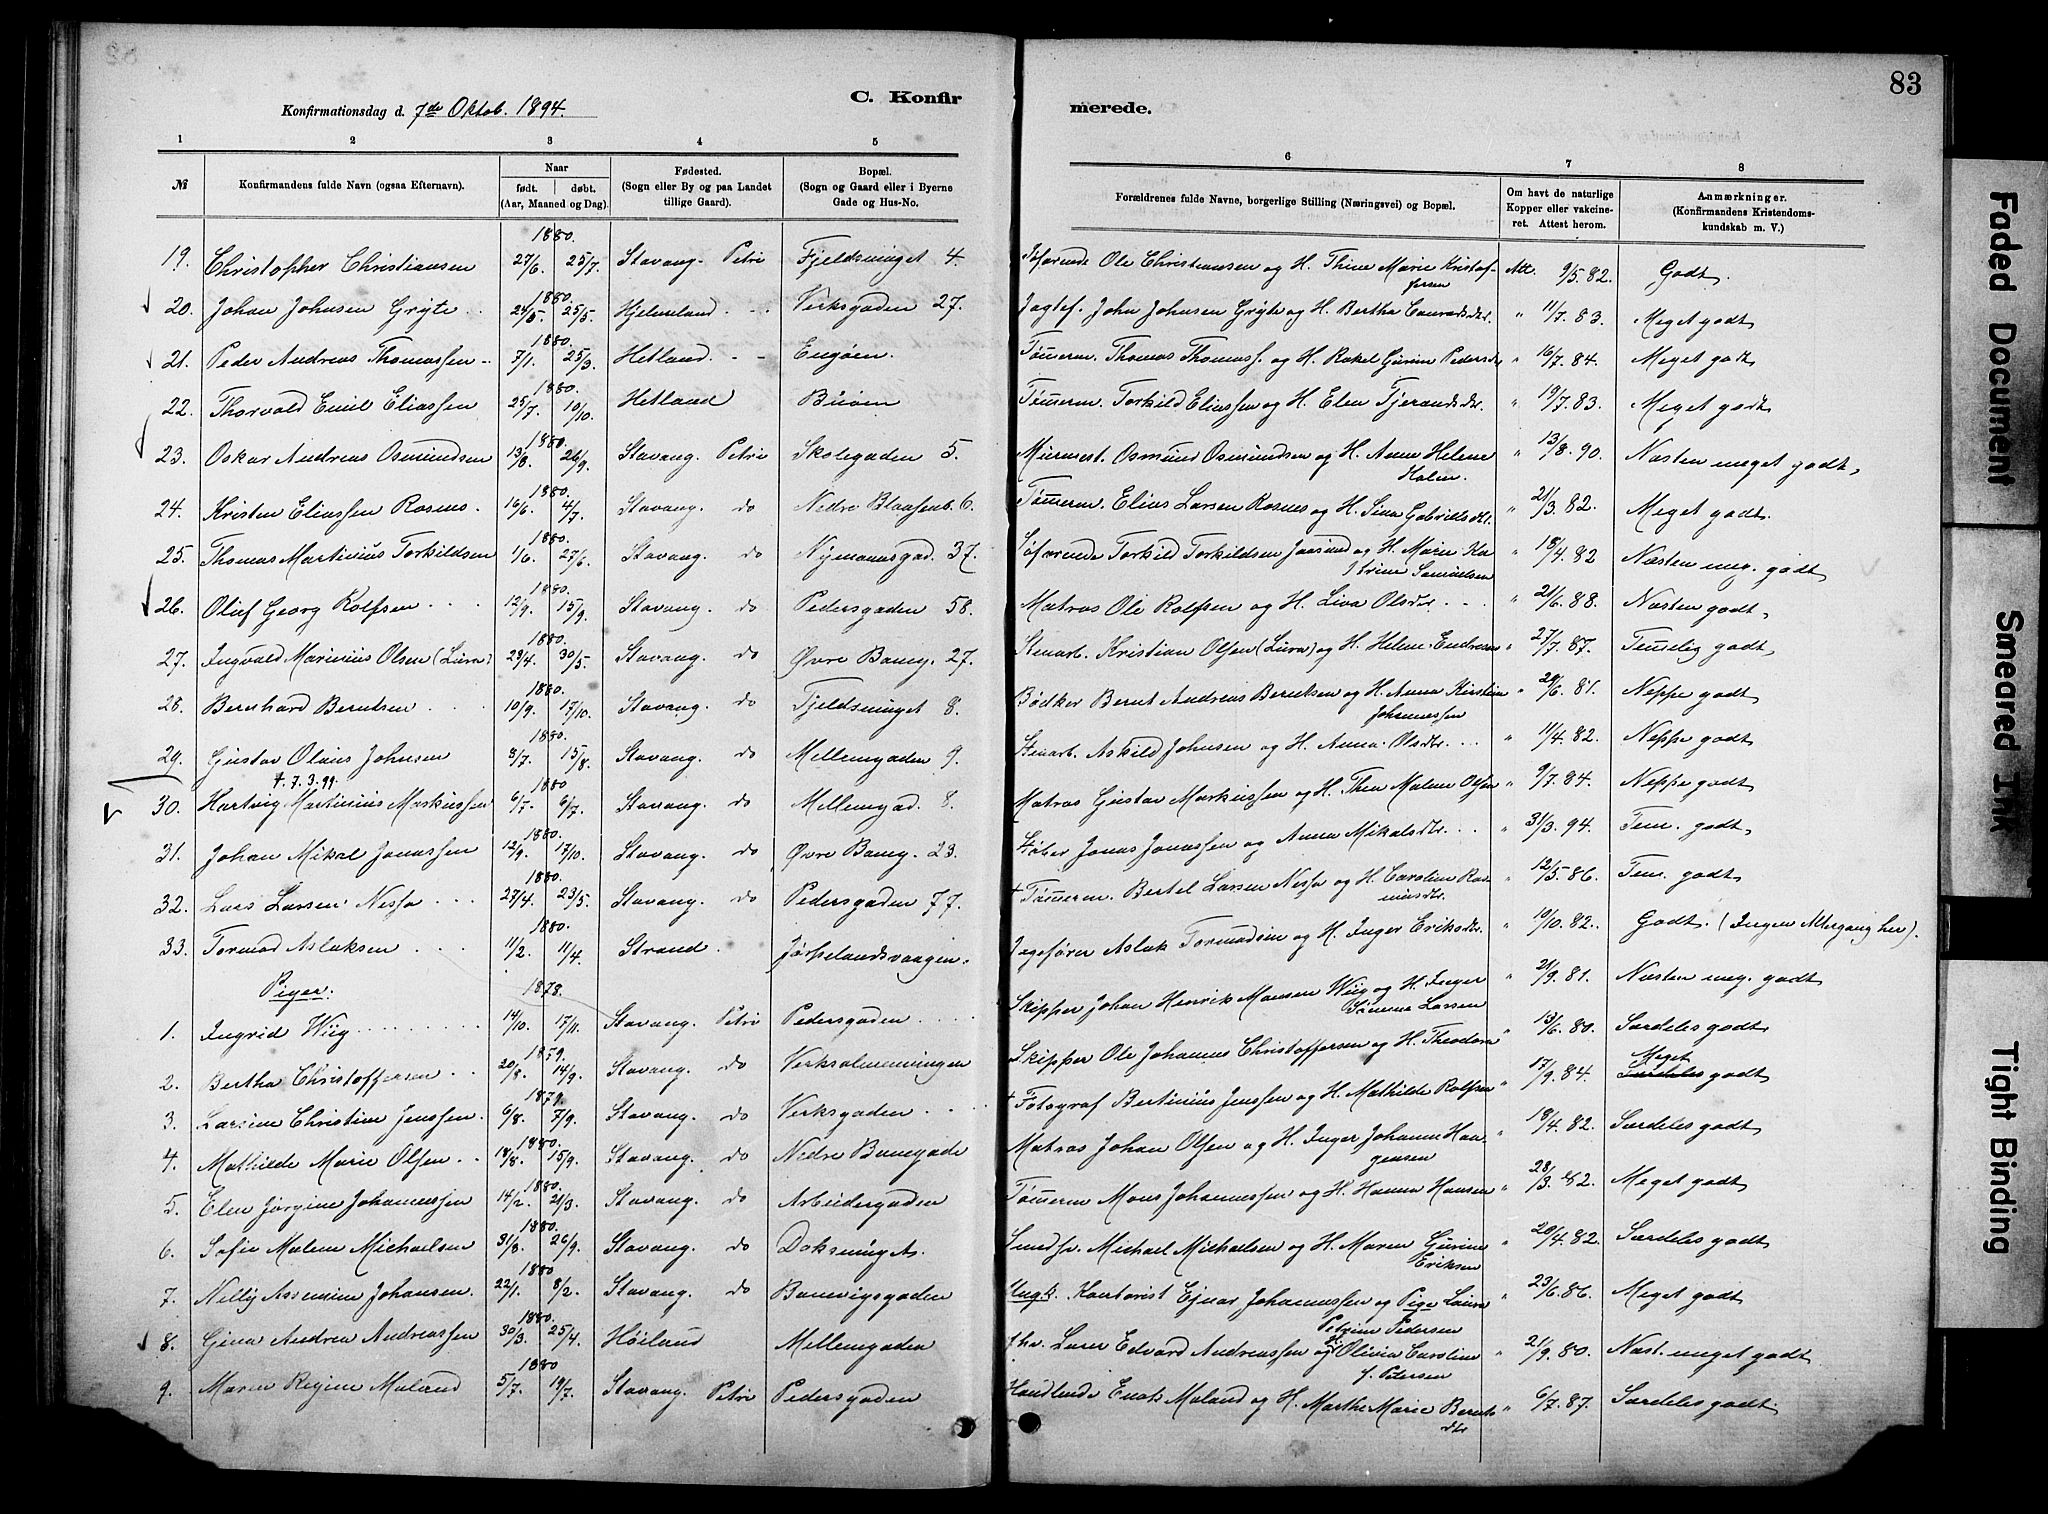 83
C. Konfirmerede.
Konfirmationsdag d. 7de Oktob. 1894.
1 2 3 4 5 6 7 8
№ Konfirmandens fulde Navn (ogsaa Efternavn). Naar født. døbt. (Aar, Maaned og Dag). Fødested. (Sogn eller By og paa Landet tillige Gaard). Bopæl. (Sogn og Gaard eller i Byerne Gade og Hus-No. Forældrenes fulde Navne, borgerlige Stilling (Næringsvei) og Bopæl. Om havt de naturlige Kopper eller vakcineret. Attest herom. Anmærkninger. (Konfirmandens Kristendomskundskab m. V.)
19. Christopher Christiansen 1880. 27/6. 25/7. Stavang. Petri Fjeldsmuget 4. Søfarende Ole Christiansen og H. Thine Marie Kristoffersen Att. 9/5. 82. Godt.
20. Johan Johnsen Gryte 1880. 24/5. 25/5. Hjelmeland Verksgaden 27. Jagtef. John Johnsen Gryte og H. Bertha Conradsdtr. " 11/7. 83. Meget godt
21. Peder Andreas Thomassen 1880. 7/1. 25/3. Hetland Engøen. Tømmerm. Thomas Thomass. og H. Rakel Gurine Pedersdtr " 16/7. 84. Meget godt
22. Thorvald Emil Eliassen 1880. 25/7. 10/10. Hetland Buøen Tømmerm. Torkild Eliassen og H. Elen Tjerandsdtr. " 19/7. 83. Meget godt
23. Oskar Andreas Osmundsen 1880. 13/8. 26/9. Stavang. Petri Skolegaden 5. Murmest. Osmund Osmundsen og H. Anna Helene Holm. " 13/8. 90. Næsten meget godt,
24. Kristen Eliassen Rosnes. 1880. 16/6. 4/7. Stavang. do Nedre Blaasenb. 6. Tømmerm. Elias Larsen Rosnes og H. Sina Gabrielsdtr. " 21/3. 82. Meget godt.
25. Thomas Martinius Torkildsen 1880. 1/6. 27/6. Stavang. do Nymansgad. 37. Søfarende Torkild Torkildsen Jaasund og H. Marie Katrine Samuelsen " 18/4. 82 Næsten meg. godt
26. Oluf Georg Rolfsen 1880. 12/9. 15/9. Stavang. do Pedersgaden 58. Matros Ole Rolfsen og H. Liva Olsdtr " 21/6. 88. Næsten godt,
27. Ingvald Marinius Olsen (Lura) 1880. 29/4. 30/5. Stavang. do Øvre Baneg. 27. Stenarb. Kristian Olsen (Lura) og H. Helene Endresen " 27/7. 87. Temmelig godt,
28. Bernhard Berntsen 1880. 10/9. 17/10. Stavang. do Fjeldsmuget 8. Bødker Bernt Andreas Berntsen og H. Anna Kirstine Johannessen " 29/6. 81. Neppe godt
29. Gustav Olaus Johnsen 1880. 3/7. 15/8. Stavang. do Mellemgaden 9. Stenarb. Askild Johnsen og H. Anna Olsdtr. " 11/4. 82. Neppe godt
† 7.3.99
30. Hartvig Martinius Markussen 1880 6/7. 6/7. Stavang. do Mellemgad. 8. Matros Gustav Markussen og H. Thea Malene Olsen " 9/7. 84. Neppe godt
31. Johan Mikal Jonassen 1880. 12/9. 17/10. Stavang. do Øvre Baneg. 23. Støber Jonas Jonassen og Anna Mikalsdtr. " 31/3. 94. Tem. godt,
32. Lars Larsen Nessa 1880. 27/4. 23/5. Stavang. do Pedersgaden 77. + Tømmerm. Bertel Larsen Nessa og H. Caroline Rasmusdtr. " 12/5. 86. Tem. godt
33. Tormod Aslaksen 1880. 11/2. 11/4. Strand. Jørpelandsvaagen. Jagefører Aslak Tormodsen og H. Inger Eriksdtr. " 10/10. 82. Godt. (Ingen Altergang her).
Piger. 1878.
1. Ingrid Wiig 14/10. 17/11. Stavang. Petri Pedersgaden Skipper Johan Henrik Monsen Wiig og H. Inger Larsen " 21/9. 81. Næsten meg. godt
2. Bertha Christoffersen 1879. 20/8. 14/9. Stavang. do Verksalmenningen Skipper Ole Johannes Christoffersen og H. Theodora " 13/6. 80. Særdeles godt
3. Larsine Christine Jenssen. 1879. 6/8. 7/9. Stavang. do Verksgaden + Fotograf Bertinius Jenssen og H. Mathilde Rolfsen " 17/9. 84. Meget Særdeles godt
4. Mathilde Marie Olsen 1880. 18/8. 15/9. Stavang. do Nedre Banegade Matros Johan Olsen og H. Inger Johanne Haagensen " 18/4. 82. Særdeles godt
5. Elen Jørgine Johannessen 1880. 14/2. 21/3. Stavang. do Arbeidergaden Tømmerm Mons Johannessen og H. Hanna Hansen " 28/3. 82. Meget godt
6. Sofie Malene Michaelsen 1880. 31/8. 26/9. Stavang. do Doksmuget. Michael Michaelsen og H. Maren Gurine Eriksen " 20/4. 82. Særdeles godt
7. Nelly Assemine Johansen. 1880 22/1. 8/2. Stavang. do Banevigsgaden Ungk. Kontorist Ejnar Johannessen og Pige Laura Petrine Pedersen " 23/6. 86. Meget godt
8. Gina Andrea Andreassen 1880. 30/3. 25/4. Høiland Mellemgaden Edvard Andreassen og Olivia Caroline f. Petersen " 21/9. 80. Næst. meget godt
9. Maren Regine Maland 1880 5/7. 19/7. Stavang. Petri Pedersgaden Handlende Enok Maland og H. Marthe Marie Berentsdtr " 6/7. 87. Særdeles godt.
Faded Document
Smeared Ink
Tight Binding